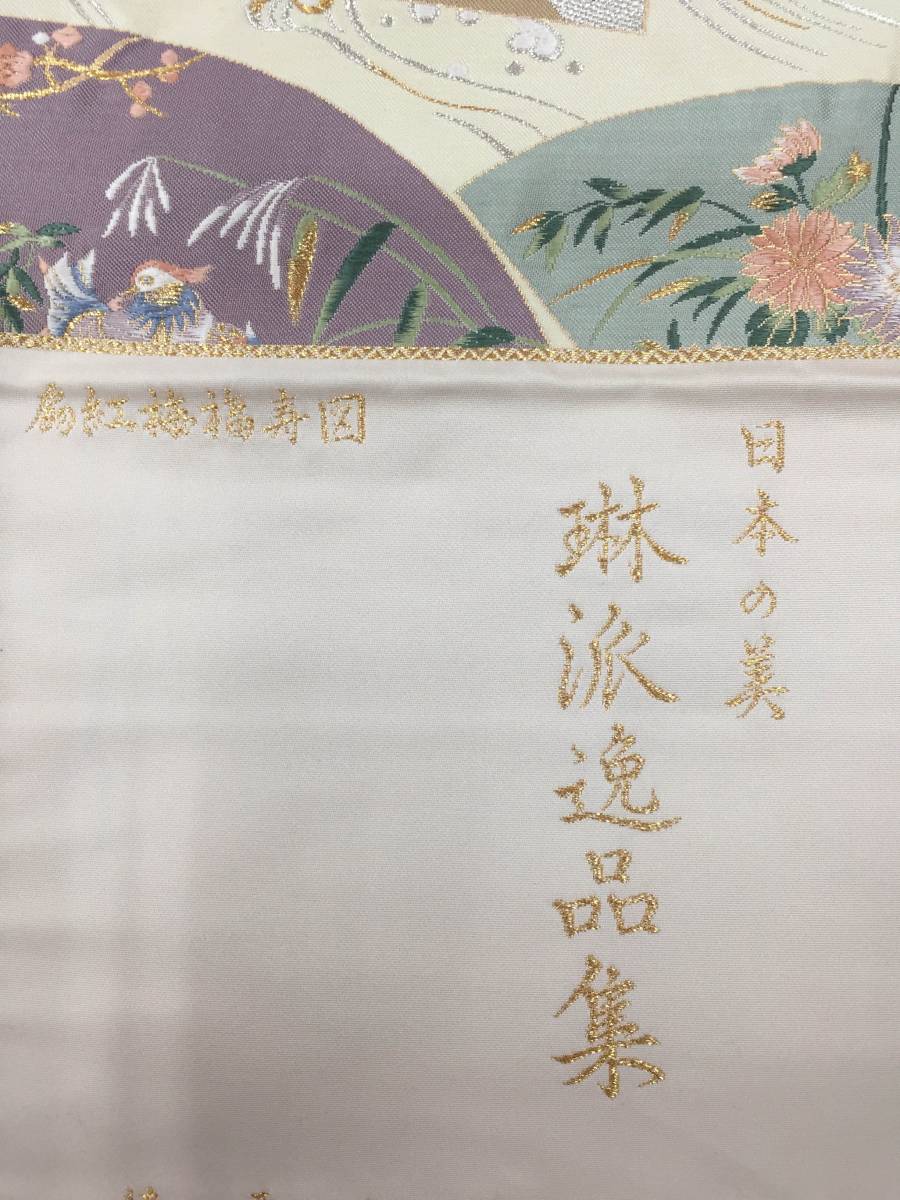 日本の美
琳派逸品集
紅梅福寿図